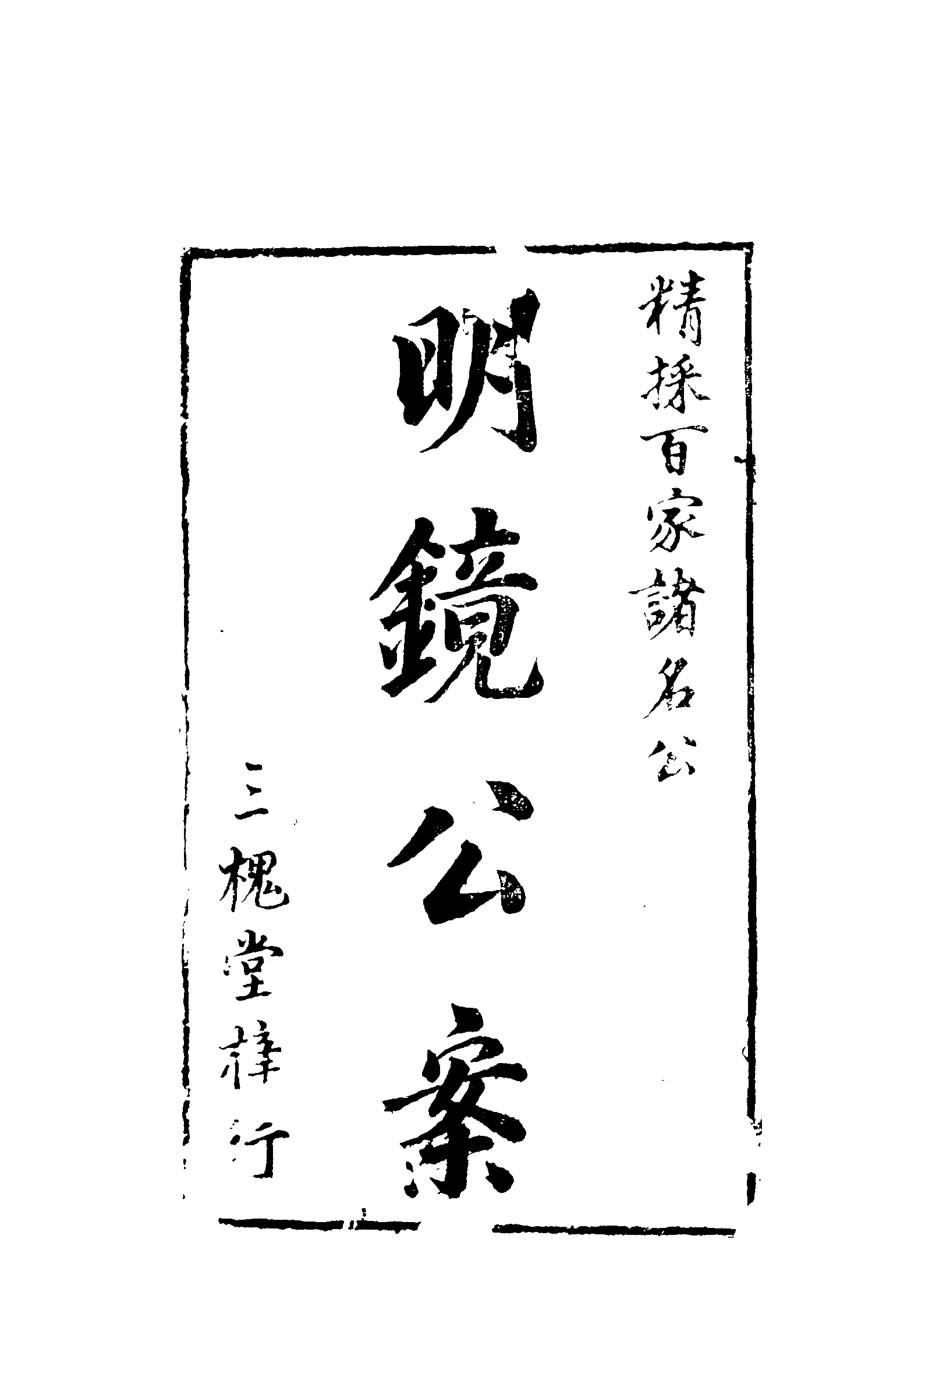 精採百家諸名公
明鏡公案
三槐堂梓行